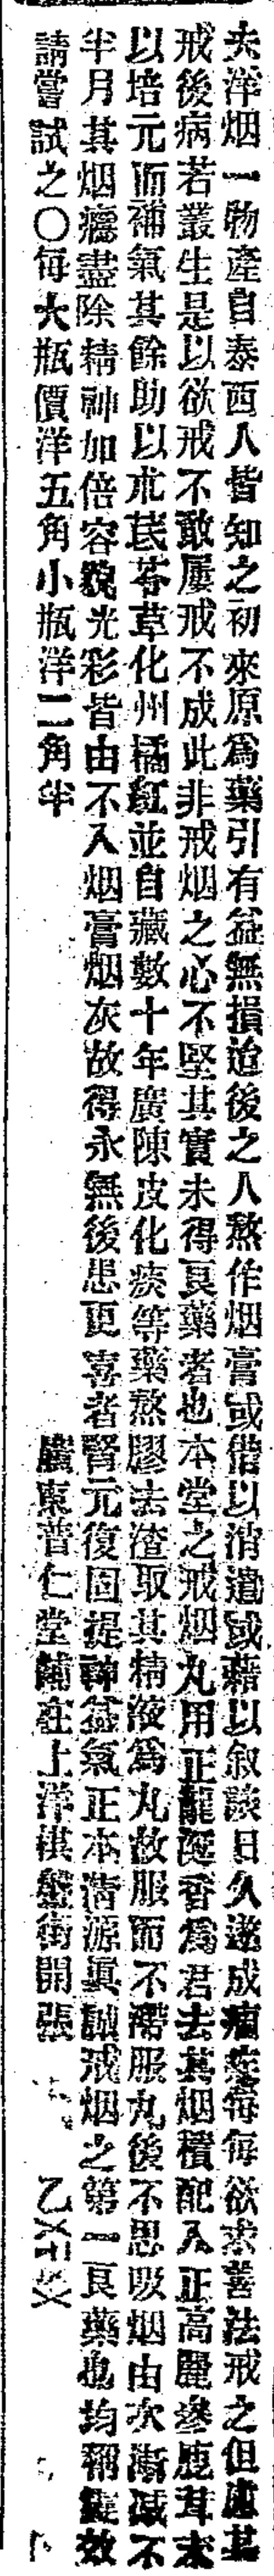 夫洋烟一物產自泰西人皆知之初來原爲藥引有益無損迨後之人熬作烟膏或借以消遣或藉以叙談日久遂成痼疾每每欲求善法戒之但慮其
戒後病若叢生是以欲戒不敢屢戒不成此非戒烟之心不堅其實未得良藥者也本堂之戒烟丸用正龍涎香爲君去其烟積配入正高麗參鹿茸末
以培元而補氣其餘助以朮芪苓草化州橘紅並自藏數十年廣陳皮化痰等藥熬膠去渣取其精液爲丸故服而不滯服丸後不思吸烟由次漸減不
半月其烟癮盡除精神加倍容貌光彩皆由不入烟膏烟灰故得永無後患更喜者腎元復固提神益氣正本清源眞誠戒烟之第一良藥也均稱捷效
請嘗試之〇每大瓶價洋五角小瓶洋二角半 廣東普仁堂舖在上洋棋盤街開張